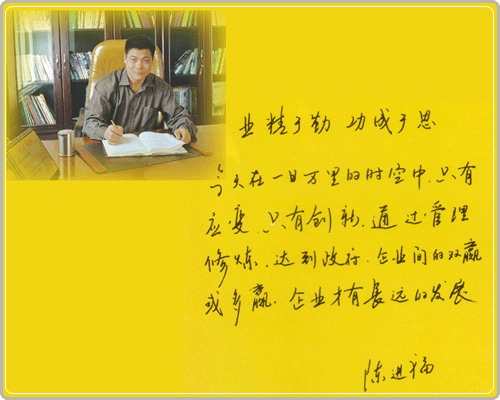 业精于勤 功成于思
今天在一日万里的时空中,只有
应变、只有创新,通过管理
修炼、达到政府、企业间的双赢
或多赢、企业才有长远的发展
陈进福